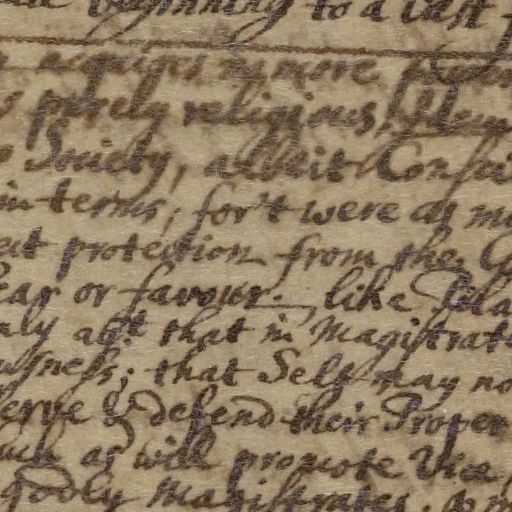 beginning to a last
acquires no more
purely religious,
Society, albeit Consci
in terms; for't were as m
protection from the
ear or favour. like Pila
nly abt that in Magistrat
usness; that Self may no
serve & defend their Proper
such as will promote Vice
godly Magistrates,